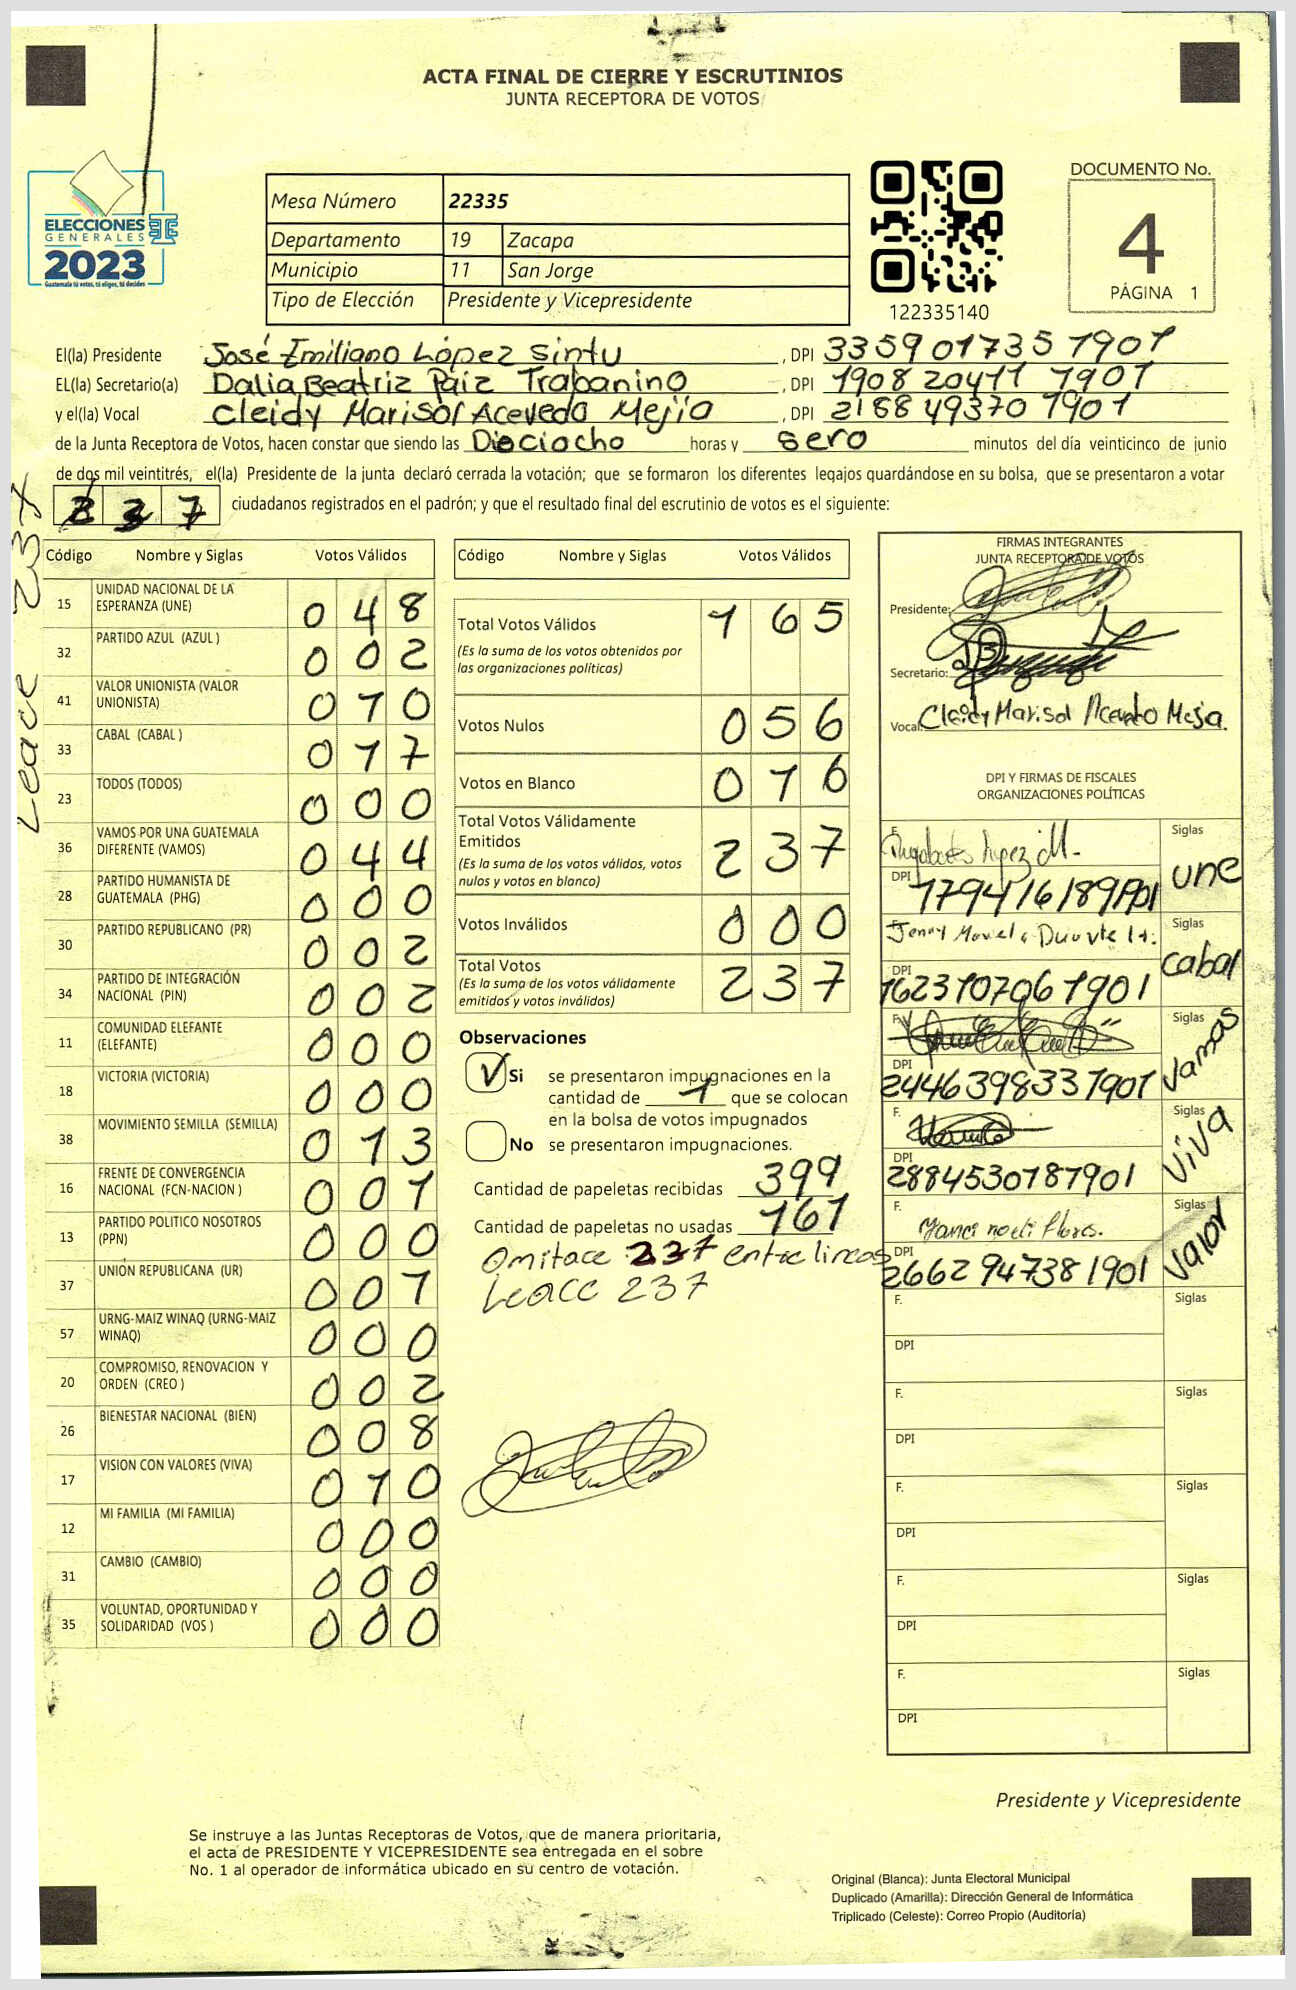 ACTA FINAL DE CIERRE Y ESCRUTINIOS
JUNTA RECEPTORA DE VOTOS
ELECCIONES
GENERALES
2023
Guatemala tú votas, tú eliges, tú decides
Mesa Número 22335
Departamento 19 Zacapa
Municipio 11 San Jorge
Tipo de Elección Presidente y Vicepresidente
122335140
DOCUMENTO No.
4
PÁGINA 1
El(la) Presidente José Emiliano López Sintu, DPI 3359 01735 1901
EL(la) Secretario(a) Dalia Beatriz Paiz Trabanino, DPI 1908 20411 1901
y el(la) Vocal Cleidy Marisol Acevedo Mejia, DPI 2188 49370 1901
de la Junta Receptora de Votos, hacen constar que siendo las Dieciocho horas y sero minutos del día veinticinco de junio
de dos mil veintitrés, el(la) Presidente de la junta declaró cerrada la votación; que se formaron los diferentes legajos guardándose en su bolsa, que se presentaron a votar
237 ciudadanos registrados en el padrón; y que el resultado final del escrutinio de votos es el siguiente:
Leace 237
Código Nombre y Siglas Votos Válidos
15 UNIDAD NACIONAL DE LA ESPERANZA (UNE) 0 4 8
32 PARTIDO AZUL (AZUL ) 0 0 2
41 VALOR UNIONISTA (VALOR UNIONISTA) 0 1 0
33 CABAL (CABAL ) 0 1 7
23 TODOS (TODOS) 0 0 0
36 VAMOS POR UNA GUATEMALA DIFERENTE (VAMOS) 0 4 4
28 PARTIDO HUMANISTA DE GUATEMALA (PHG) 0 0 0
30 PARTIDO REPUBLICANO (PR) 0 0 2
34 PARTIDO DE INTEGRACIÓN NACIONAL (PIN) 0 0 2
11 COMUNIDAD ELEFANTE (ELEFANTE) 0 0 0
18 VICTORIA (VICTORIA) 0 0 0
38 MOVIMIENTO SEMILLA (SEMILLA) 0 1 3
16 FRENTE DE CONVERGENCIA NACIONAL (FCN-NACION ) 0 0 1
13 PARTIDO POLITICO NOSOTROS (PPN) 0 0 0
37 UNION REPUBLICANA (UR) 0 0 1
57 URNG-MAIZ WINAQ (URNG-MAIZ WINAQ) 0 0 0
20 COMPROMISO, RENOVACION Y ORDEN (CREO ) 0 0 2
26 BIENESTAR NACIONAL (BIEN) 0 0 8
17 VISION CON VALORES (VIVA) 0 1 0
12 MI FAMILIA (MI FAMILIA) 0 0 0
31 CAMBIO (CAMBIO) 0 0 0
35 VOLUNTAD, OPORTUNIDAD Y SOLIDARIDAD (VOS ) 0 0 0
Código Nombre y Siglas Votos Válidos
Total Votos Válidos 1 6 5
(Es la suma de los votos obtenidos por
las organizaciones políticas)
Votos Nulos 0 5 6
Votos en Blanco 0 1 6
Total Votos Válidamente
Emitidos 2 3 7
(Es la suma de los votos válidos, votos
nulos y votos en blanco)
Votos Inválidos 0 0 0
Total Votos 2 3 7
(Es la suma de los votos válidamente
emitidos y votos inválidos)
Observaciones
Si se presentaron impugnaciones en la
cantidad de 1 que se colocan
en la bolsa de votos impugnados
No se presentaron impugnaciones.
Cantidad de papeletas recibidas 399
Cantidad de papeletas no usadas 161
Omitace 237 entre lineas
Leace 237
FIRMAS INTEGRANTES
JUNTA RECEPTORA DE VOTOS
Presidente:
Secretario:
Vocal: Cleidy Marisol Acevedo Mejia.
DPI Y FIRMAS DE FISCALES
ORGANIZACIONES POLÍTICAS
F. Siglas
DPI 1794161891901 une
F. Siglas
DPI 1623107061901 cabal
F. Siglas
DPI 2446398331901 Vamos
F. Siglas
DPI 2884530781901 Viva
F. Siglas
DPI 2662947381901 Valor
F. Siglas
DPI
F. Siglas
DPI
F. Siglas
DPI
F. Siglas
DPI
F. Siglas
DPI
Presidente y Vicepresidente
Se instruye a las Juntas Receptoras de Votos, que de manera prioritaria,
el acta de PRESIDENTE Y VICEPRESIDENTE sea entregada en el sobre
No. 1 al operador de informática ubicado en su centro de votación.
Original (Blanca): Junta Electoral Municipal
Duplicado (Amarilla): Dirección General de Informática
Triplicado (Celeste): Correo Propio (Auditoría)